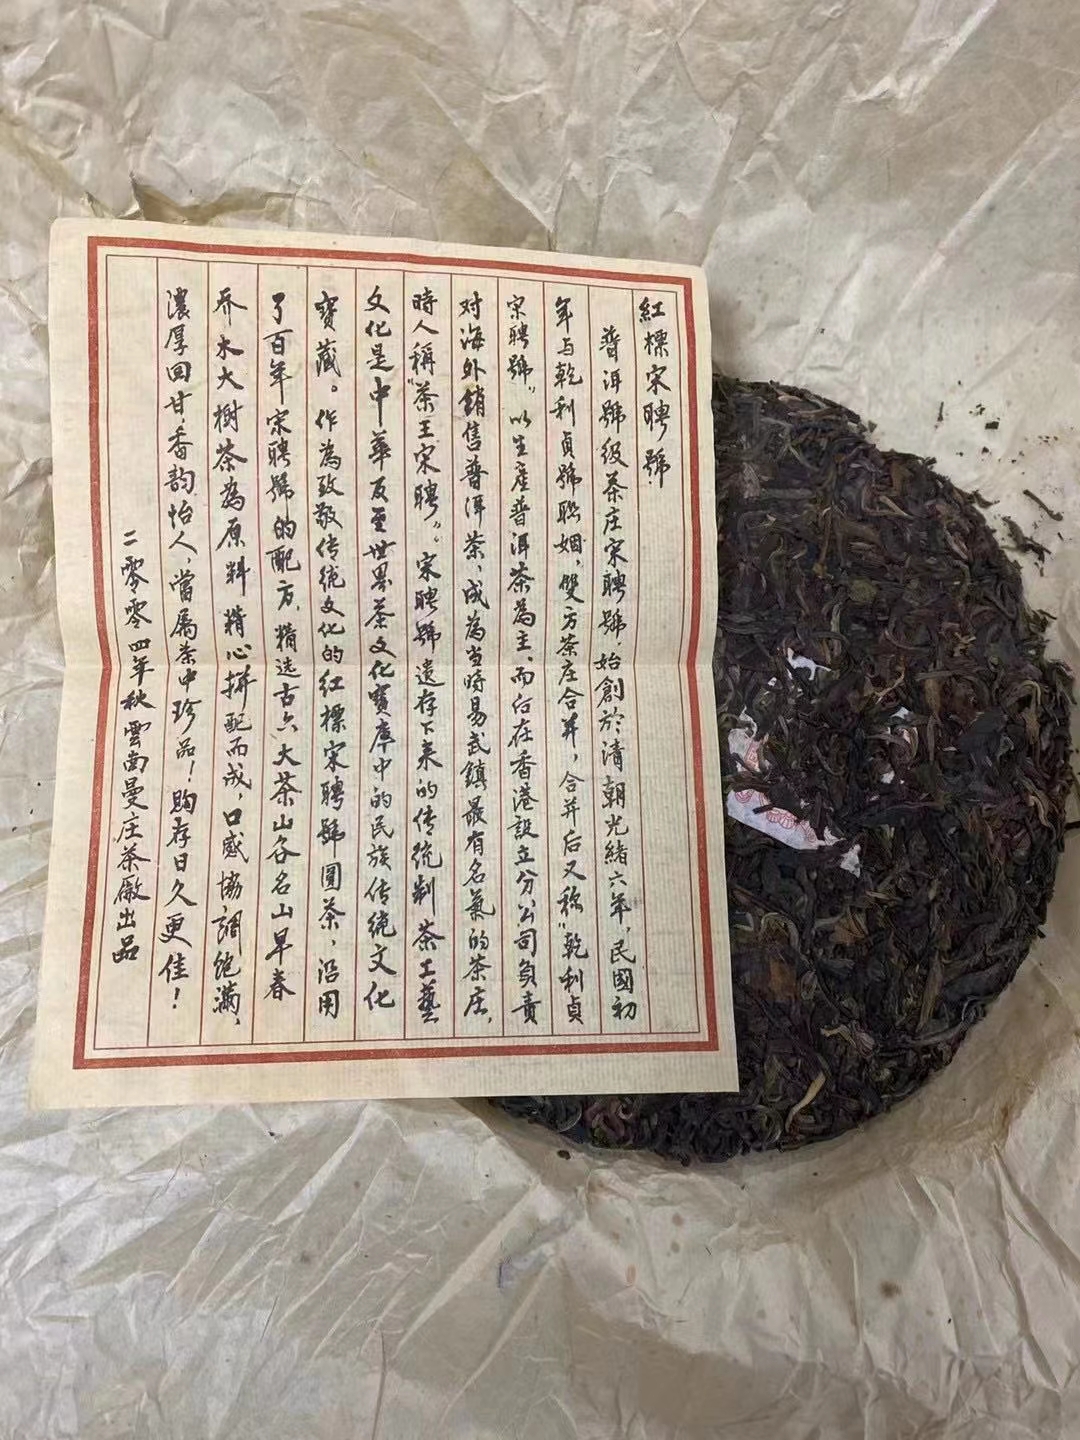 紅標宋聘號
普洱號级茶庄宋聘號，始創於清朝光緒六年，民國初
年与乾利貞號聯姻，雙方茶庄合并，合并后又称“乾利貞
宋聘號”。以生産普洱茶為主，而后在香港設立分公司負责
对海外銷售普洱茶，成為当時易武鎮最有名氣的茶庄，
時人稱“茶王宋聘”。宋聘號遗存下来的传统制茶工藝
文化是中華及至世界茶文化寶庫中的民族传统文化
寶藏。作為致敬传统文化的紅標宋聘號圓茶，沿用
了百年宋聘號的配方，精选古六大茶山各名山早春
乔木大樹茶為原料精心拼配而成，口感協調饱满，
濃厚回甘，香韵怡人，當属茶中珍品！购存日久更佳！
二零零四年秋雲南曼庄茶廠出品